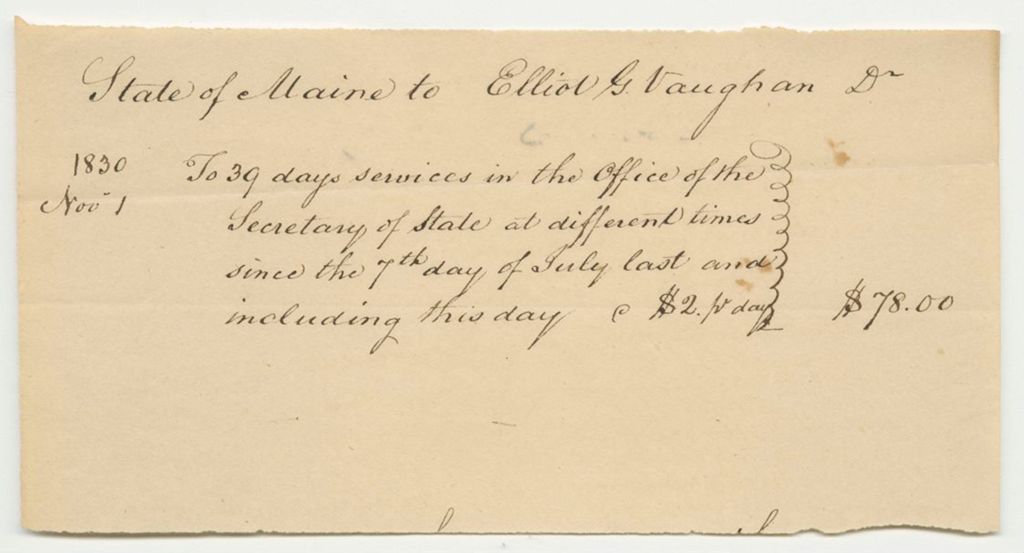 State of Maine to Elliot G. Vaughan Dr
1830 To 39 days services in the Office of the
Nov 1 Secretary of State at different times
since the 7th day of July last and
including this day @ $2. pr day $78.00